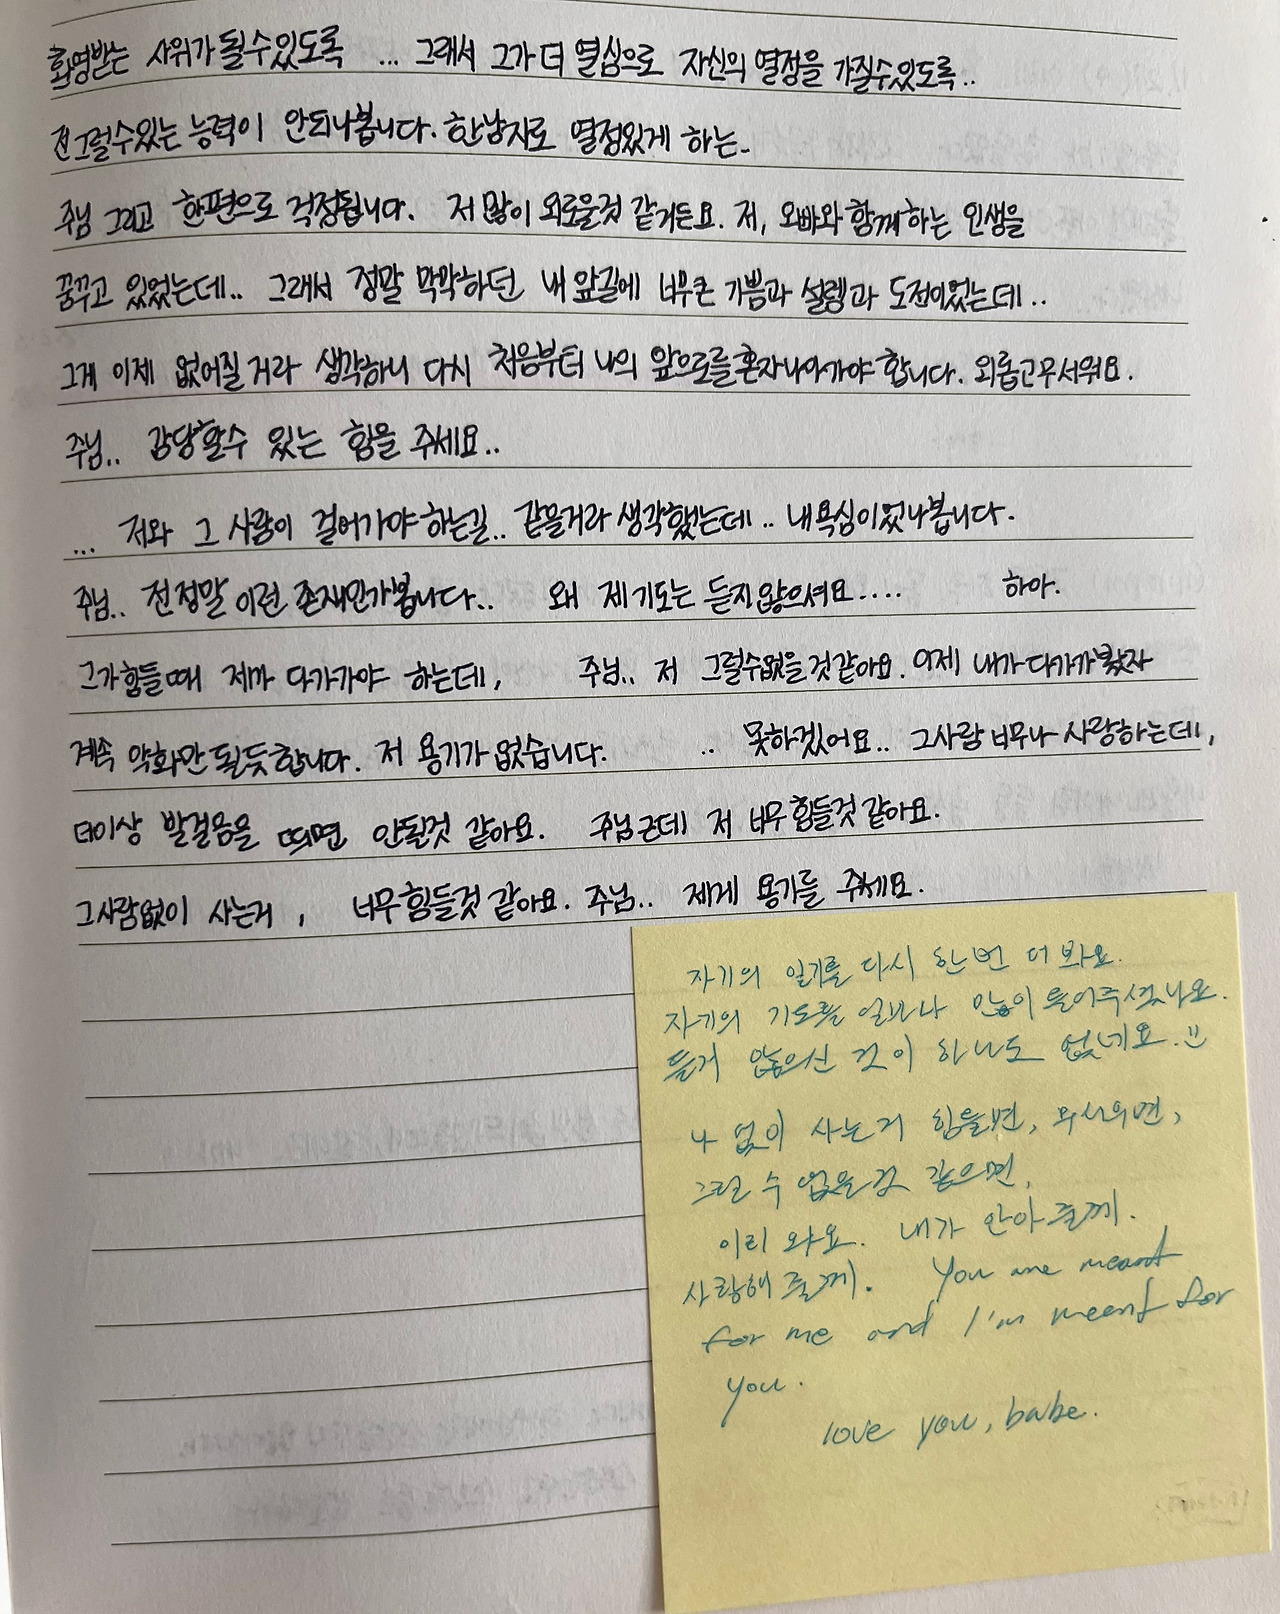 환영받는 사위가 될수있도록 ... 그래서 그가 더 열심으로 자신의 열정을 가질수있도록..
전 그럴수있는 능력이 안되나봅니다. 한남자로 열정있게 하는..
주님 그리고 한편으로 걱정됩니다. 저 많이 외로울것 같거든요. 저, 오빠와 함께하는 인생을
꿈꾸고 있었는데.. 그래서 정말 막막하던 내 앞길에 너무큰 기쁨과 설렘과 도전이었는데..
그게 이제 없어질거라 생각하니 다시 처음부터 나의 앞으로를 혼자나아가야 합니다. 외롭고무서워요.
주님.. 감당할수 있는 힘을 주세요..
... 저와 그 사람이 걸어가야 하는길.. 같을거라 생각했는데.. 내욕심이었나봅니다.
주님.. 전정말 이런 존재인가봅니다.. 왜 제기도는 듣지않으셔요.... 하아.
그가힘들때 제가 다가가야 하는데, 주님.. 저 그럴수없을것같아요. 이제 내가 다가가봤자
계속 악화만 될듯합니다. 저 용기가 없습니다. .. 못하겠어요.. 그사람 너무나 사랑하는데,
더이상 발걸음을 띄면 안될것 같아요. 주님근데 저 너무힘들것같아요.
그사람없이 사는거, 너무힘들것 같아요. 주님.. 제게 용기를 주세요.
자기의 일기를 다시 한번 더 봐요.
자기의 기도를 얼마나 많이 들어주셨나요.
듣지 않으신 것이 하나도 없네요. :)
나 없이 사는거 힘들면, 무서우면,
그럴 수 없을것 같으면,
이리 와요. 내가 안아줄께.
사랑해 줄께. You are meant
for me and I'm meant for
you.
love you, babe.